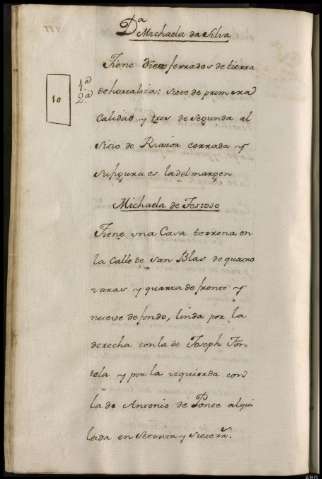 Dª Michaela da Silva
Tiene Diez ferrados de tierra
1ª
2ª
10
de hortaliza: siete de primera
Calidad y tres de segunda al
Sitio de Riazon cerrada y
su figura es la del margen
Michaela de Torroso
Tiene una Casa terrena en
la Calle de San Blas de quatro
varas y quarta de frente y
nueve de fondo, linda por la
derecha con la de Joseph Fon-
tela y por la izquierda con
la de Antonio de Ponte alqui
lada en Setenta y siete rˢ.